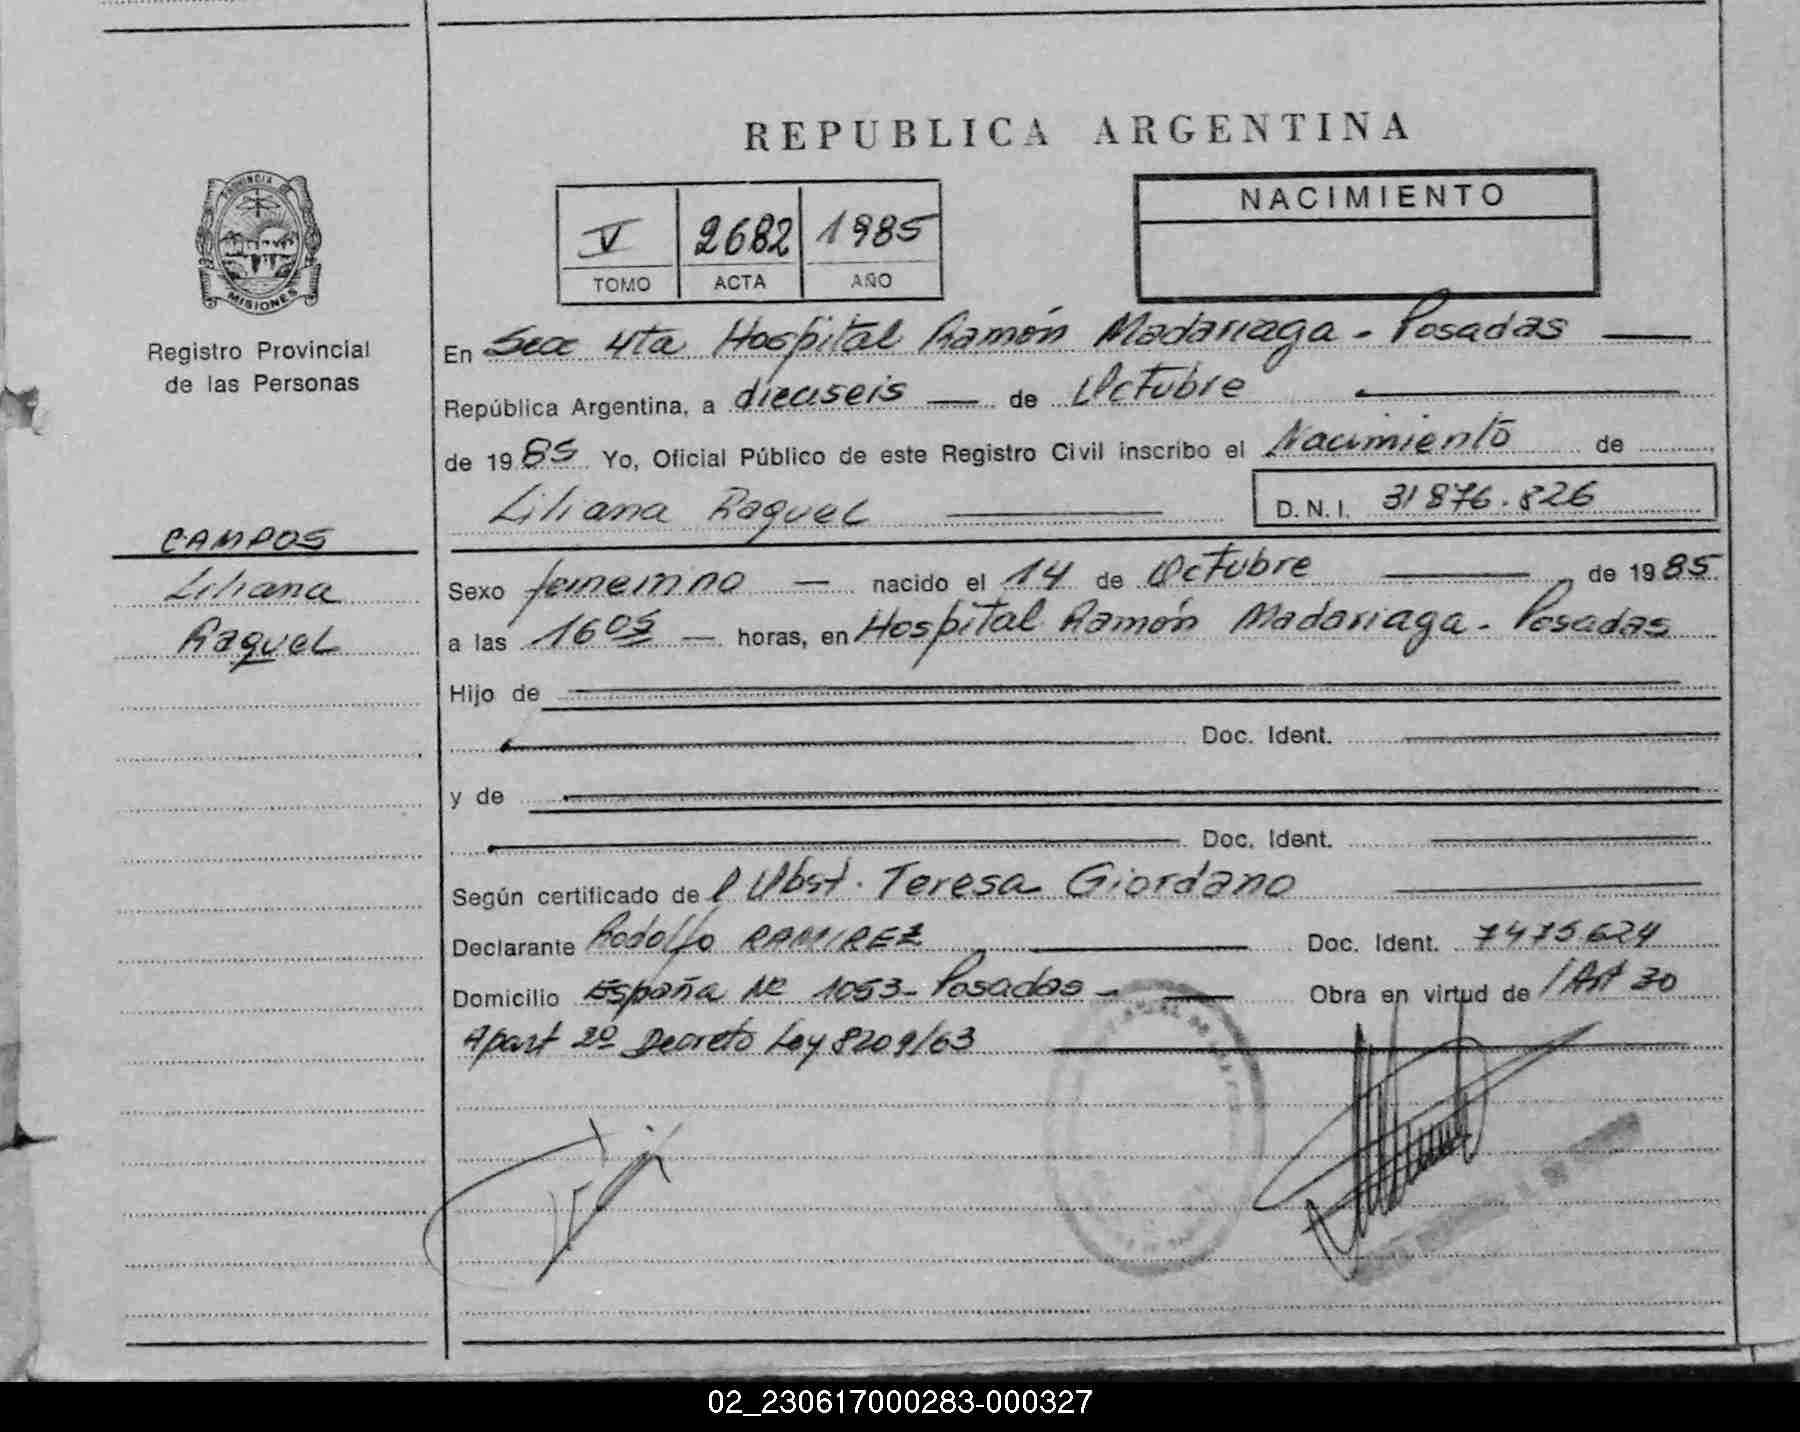 REPUBLICA ARGENTINA
PROVINCIA DE
MISIONES
Registro Provincial
de las Personas
V 2682 1985
TOMO ACTA AÑO
NACIMIENTO
En Secc 4ta Hospital Ramón Madariaga - Posadas
República Argentina, a dieciseis de Octubre
de 1985 Yo, Oficial Público de este Registro Civil inscribo el Nacimiento de
Liliana Raquel
D.N.I. 31876.826
CAMPOS
Liliana
Raquel
Sexo femenino nacido el 14 de Octubre de 1985
a las 1605 horas, en Hospital Ramón Madariaga - Posadas
Hijo de
Doc. Ident.
y de
Doc. Ident.
Según certificado de Obst. Teresa Giordano
Declarante Rodolfo RAMIREZ Doc. Ident. 7475624
Domicilio España Nº 1053 - Posadas - Obra en virtud de Art 30
Apart 2º Decreto Ley 8209/63
02_230617000283-000327